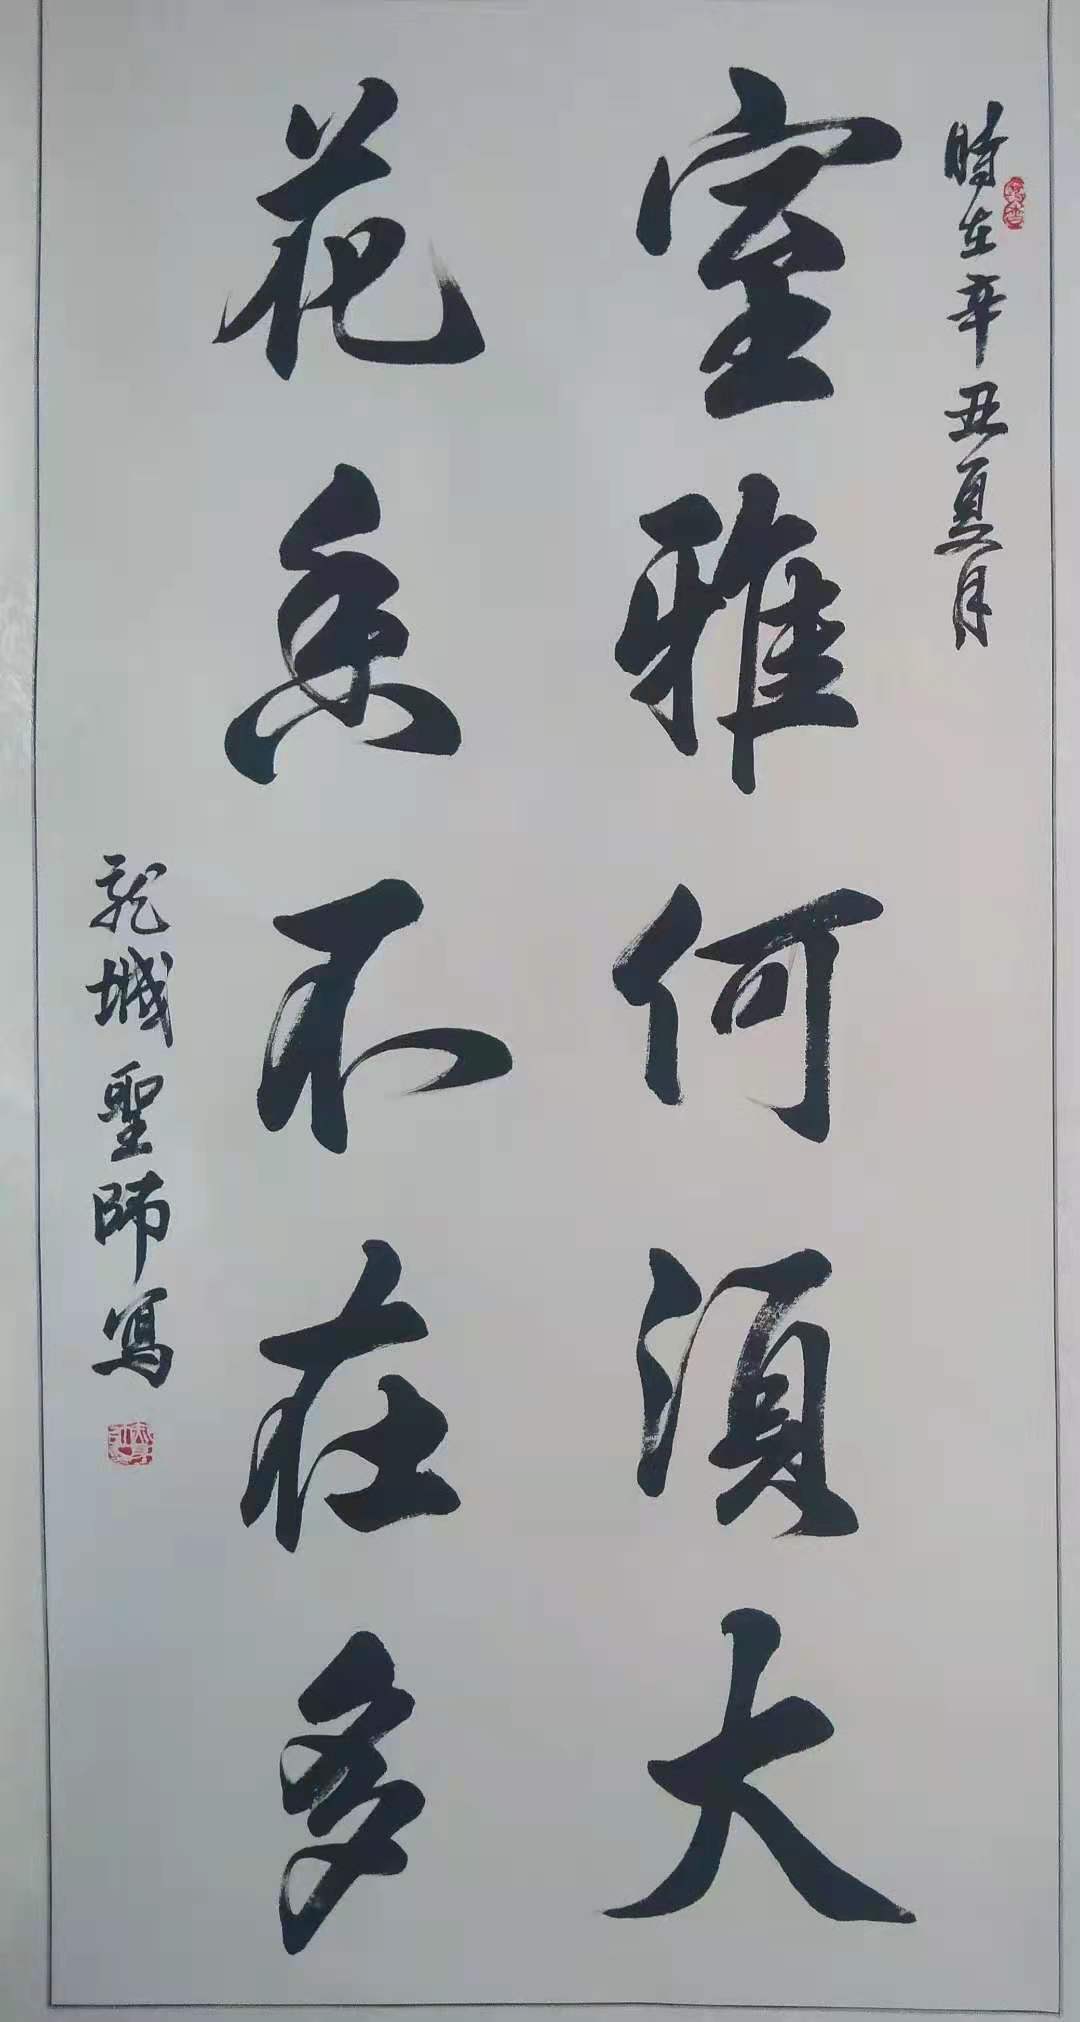 時在辛丑夏月
室雅何須大
花香不在多
龍城聖師寫